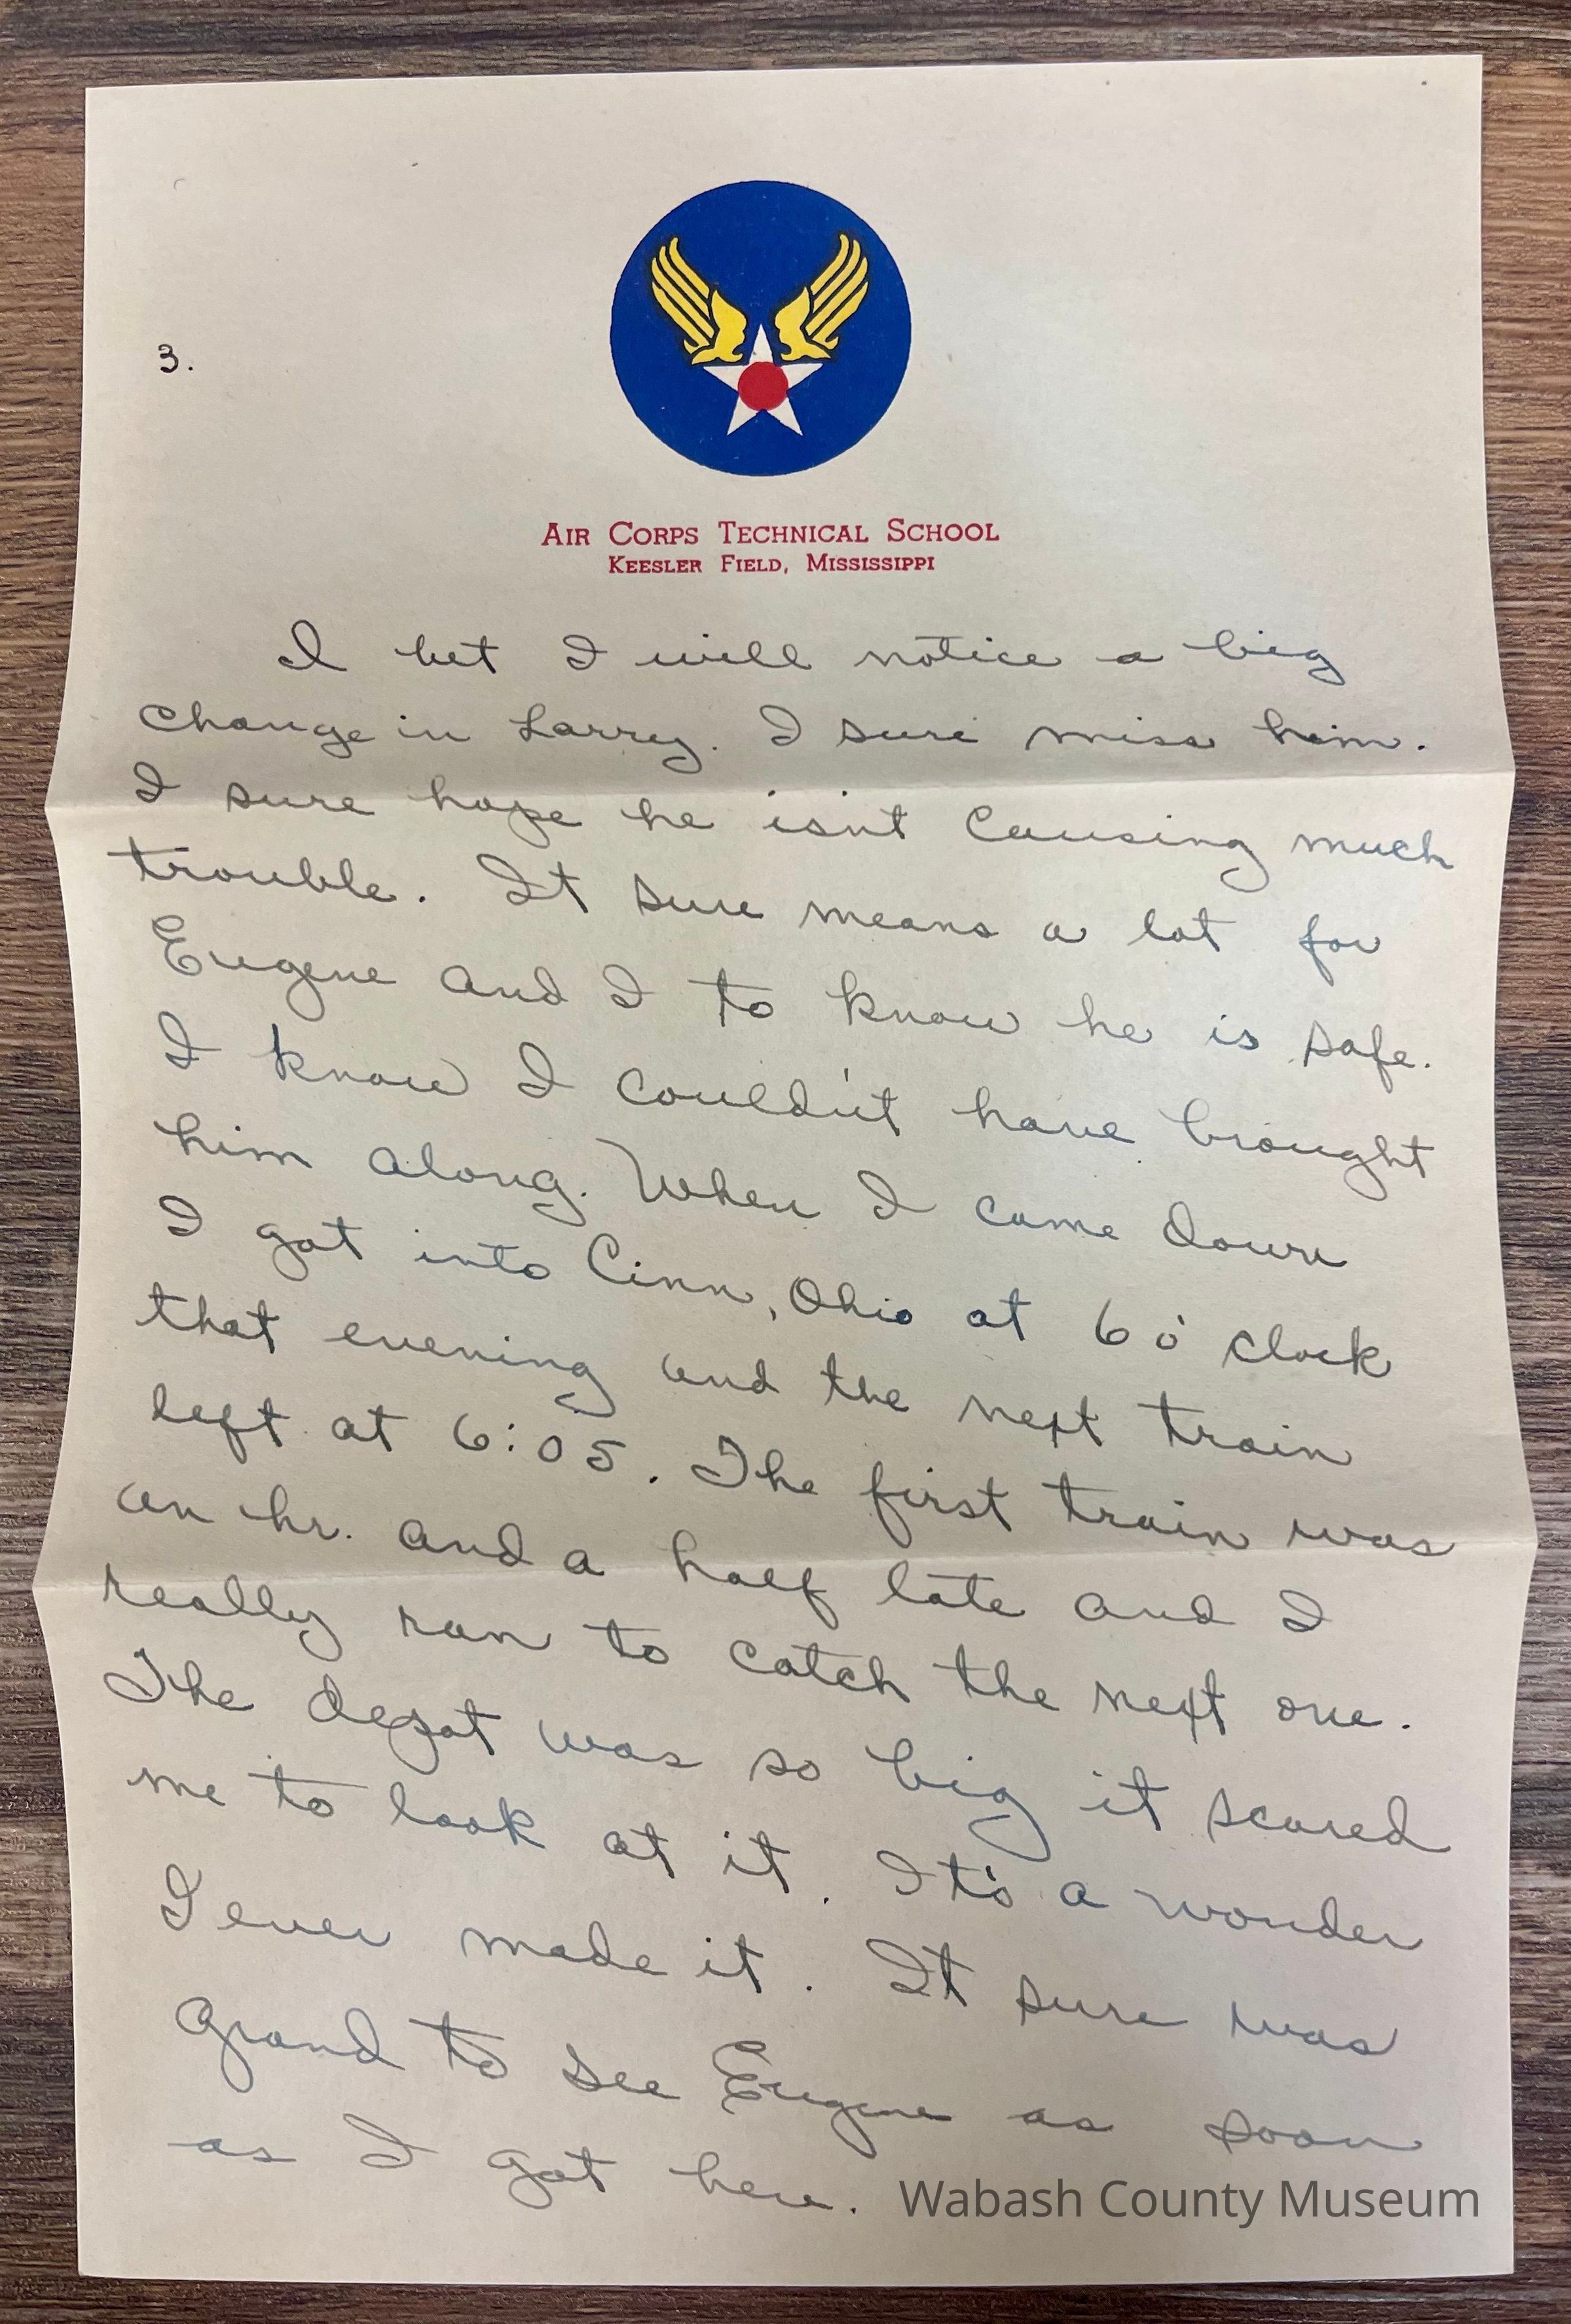 3.
AIR CORPS TECHNICAL SCHOOL
KEESLER FIELD, MISSISSIPPI
I bet I will notice a big
change in Larry. I sure miss him.
I sure hope he isn't causing much
trouble. It sure means a lot for
Eugene and I to know he is safe.
I know I couldn't have brought
him along. When I came down
I got into Cinn, Ohio at 6 o'clock
that evening and the next train
left at 6:05. The first train was
an hr. and a half late and I
really ran to catch the next one.
The depot was so big it scared
me to look at it. It's a wonder
I ever made it. It sure was
grand to see Eugene as soon
as I got here.
Wabash County Museum